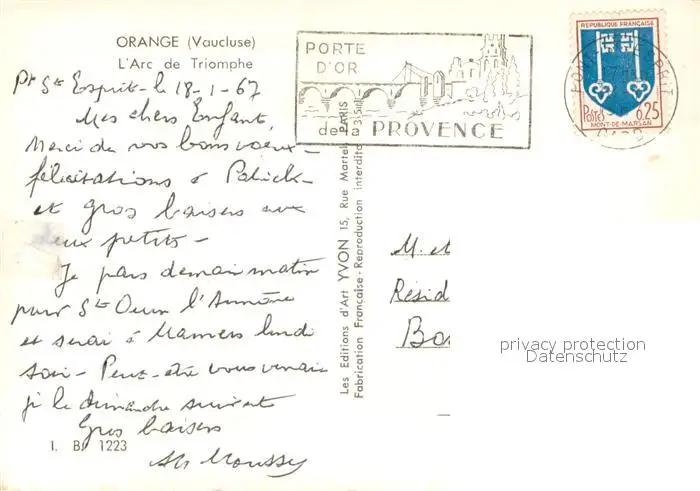 ORANGE (Vaucluse)
L'Arc de Triomphe
Pt St Esprit - le 18-1-67
Mes chers Enfants,
Merci de vos bons voeux -
félicitations à Patrick -
et gros baisers aux
deux petits -
Je pars demain matin
pour St Ouen l'Aumône
et serai à Mamers lundi
soir - Peut-être vous verrai
je le dimanche suivant
Gros baisers
Moussy
I. B. 1223
Les Editions d'Art YVON 15, Rue Martel, PARIS
Fabrication Française - Reproduction interdite
PORTE
D'OR
de la PROVENCE
REPUBLIQUE FRANÇAISE
Postes 0,25
MONT-DE-MARSAN
M. et
Résid
Bo
privacy protection
Datenschutz